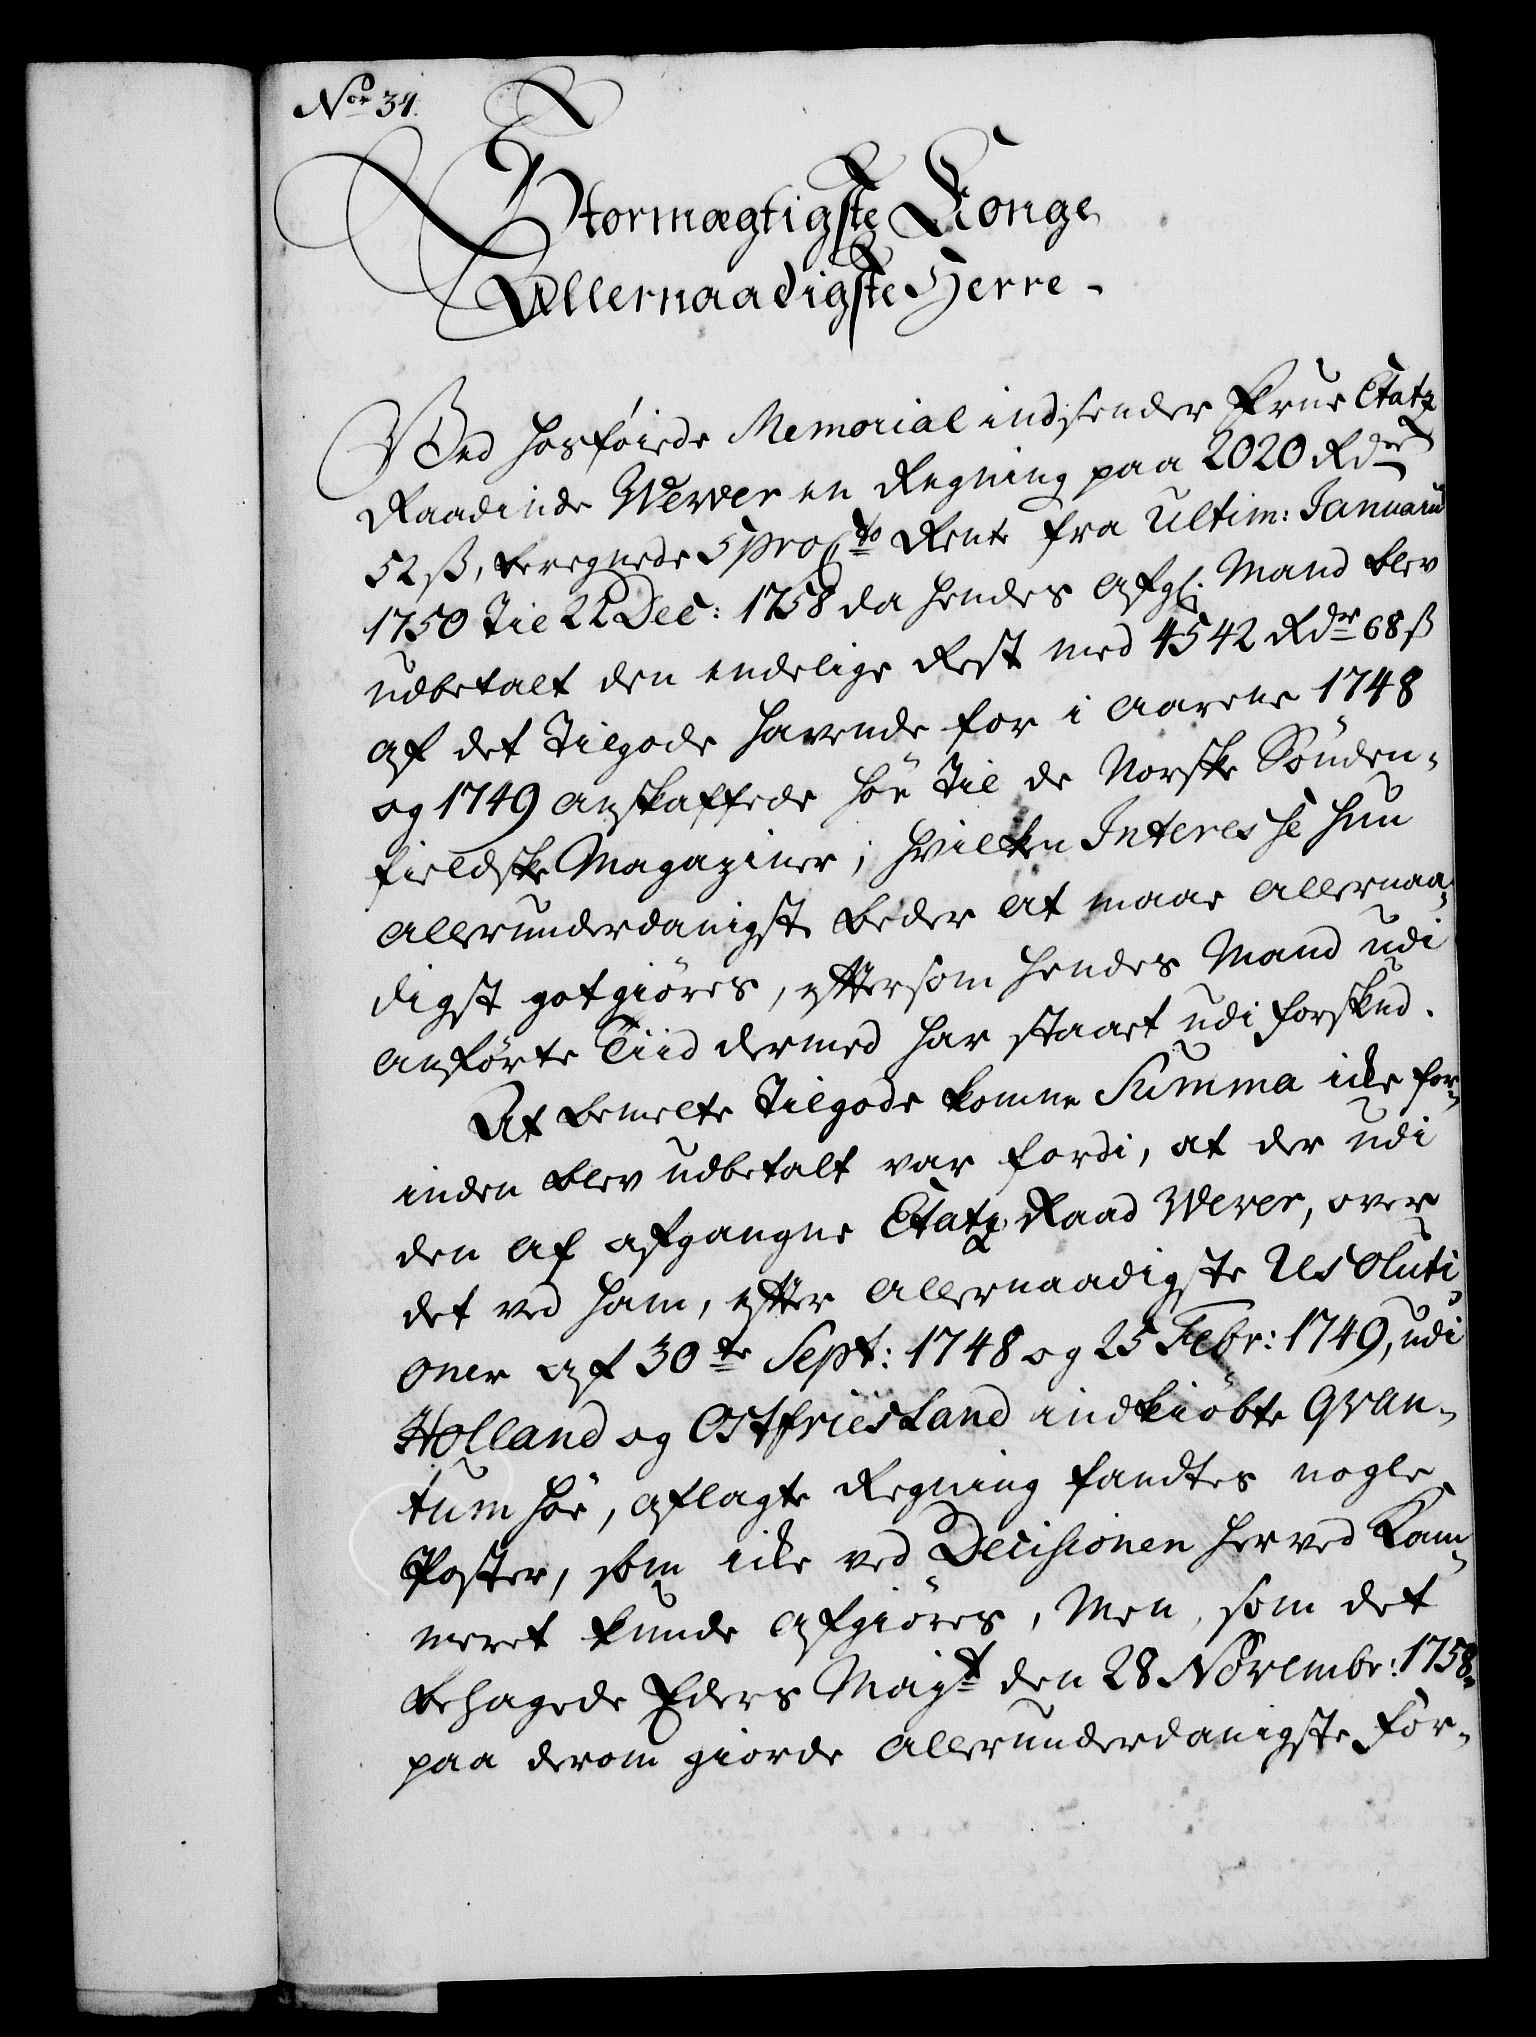 No. 34.
Stormægtigste Konge
Allernaadigste Herre -
Ved hosføiede Memorial indsender Frue Etatz
Raadinde Werver en Regning paa 2020 Rdr
52 ß, beregnede 5 pro Cto Rente fra Ultim: Januarii
1750 til 22 Dec: 1758 da hendes afgl. Mand blev
udbetalt den endelige Rest med 4542 Rdr 68 ß
af det tilgode havende for i Aarene 1748
og 1749 anskaffede Höe til de Norske Sönden-
fieldske Magaziner; hvilken Interesse hun
allerunderdanigst beder at maae allernaa-
digst gotgiöres, eftersom hendes Mand udi
anförte Tiid dermed har staaet udi Forskud.
At bemelte tilgode komne Summa icke for-
inden blev udbetalt var fordi, at der udi
den af afgangne Etatz Raad Werver, over
det ved ham, efter allernaadigste Resoluti-
oner af 30te Sept: 1748 og 25 Febr: 1749, udi
Holland og Ostfriesland indkiöbte Qvan-
tum Höe, aflagte Regning fandtes nogle
Poster, som icke ved Decisionen her ved Kam-
meret kunde afgiöres, Men, som det
behagede Eders Mayt den 28 Novembr: 1758
paa derom giorde allerunderdanigste For-